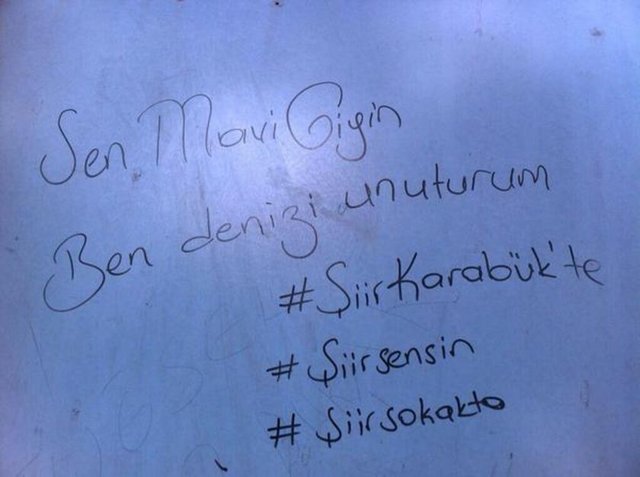 Sen Mavi Giyin
Ben denizi unuturum
#ŞiirKarabük'te
#Şiirsensin
#Şiirsokakta